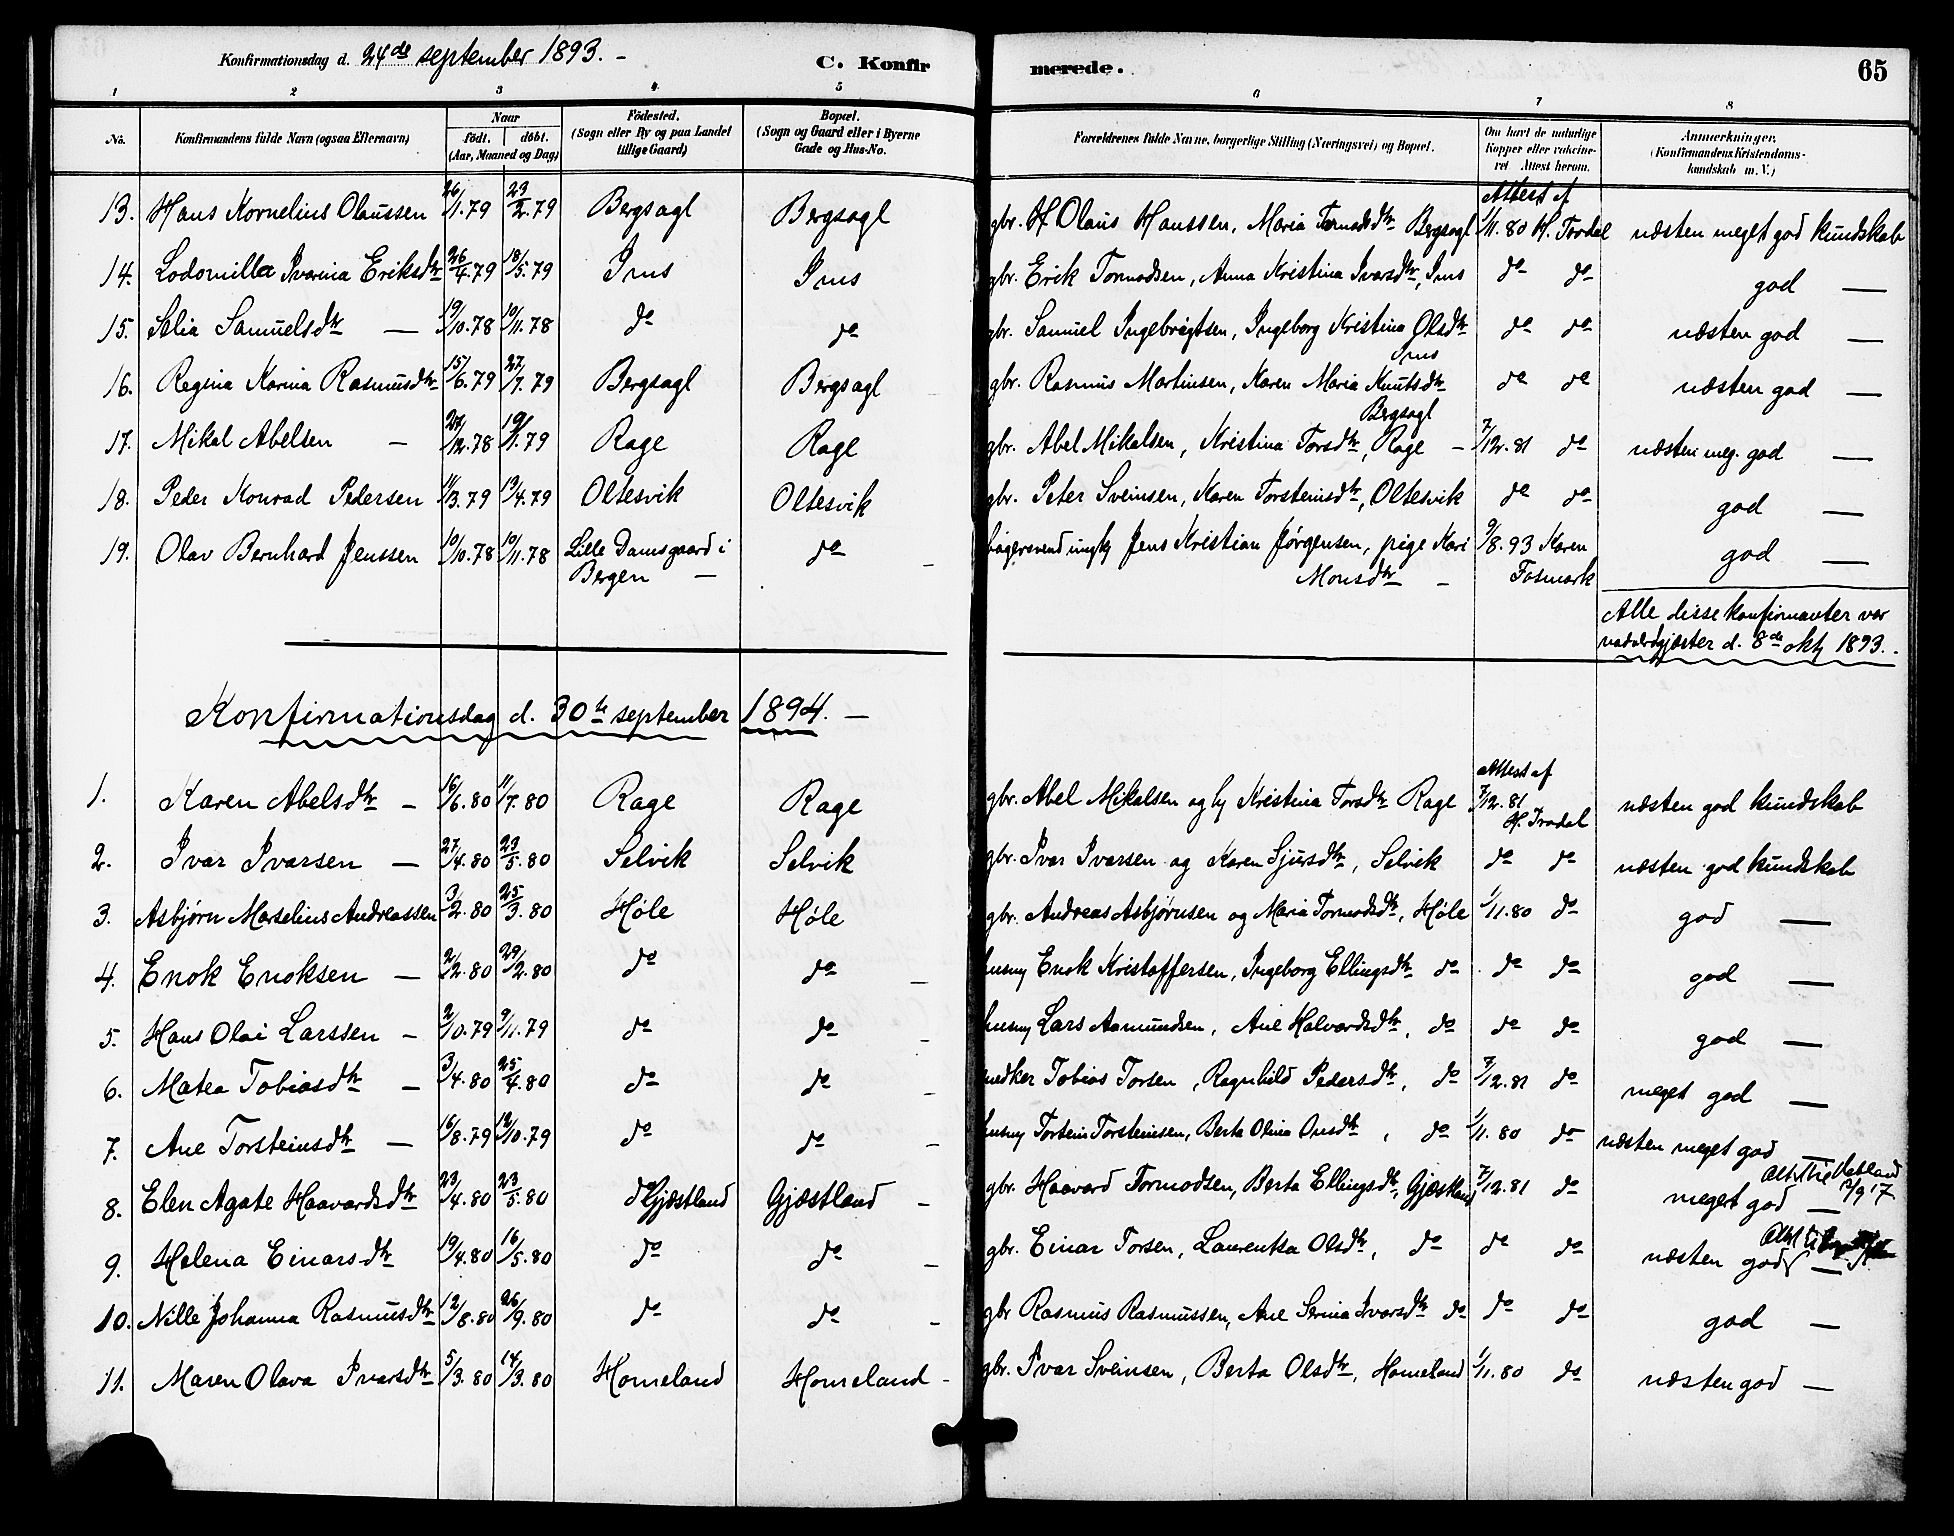 Konfirmationsdag d. 24de september 1893. -
C. Konfirmerede.
65
1 2 3 4 5 6 7 8
No. Konfirmandens fulde Navn (ogsaa Efternavn) Naar født. døbt. (Aar, Maaned og Dag) Fødested. (Sogn eller By og paa Landet tillige Gaard) Bopæl. (Sogn og Gaard eller i Byerne Gade og Hus-No. Forældrenes fulde Navne, borgerlige Stilling (Næringsvei) og Bopæl. Om havt de naturlige Kopper eller vakcineret Attest herom. Anmærkninger. (Konfirmandens Kristendomskundskab m. V.)
Attest af
13. Hans Kornelius Olaussen 26/1.79 23/2.79 Bergsagl Bergsagl gbr. Olaus Hanssen, Maria Tormodsdtr Bergsagl 1/11.80 H. Tvedal næsten meget god kundskab
14. Lodomilla Ivarina Eriksdtr 26/4.79 18/5.79 Ims Ims gbr. Erik Tormodsen, Anna Kristina Ivarsdtr, Ims do do god —
15. Selia Samuelsdtr — 19/10.78 10/11.78 do do gbr. Samuel Ingebrigtsen, Ingeborg Kristina Olsdtr Ims do do næsten god —
16. Regina Karina Rasmusdtr 15/6.79 27/7.79 Bergsagl Bergsagl gbr. Rasmus Martinsen, Karen Maria Knutsdtr Bergsagl do do næsten god —
17. Mikal Abelsen — 27/12.78 19/1.79 Rage Rage gbr. Abel Mikalsen, Kristina Torsdtr, Rage — 7/12.81 do næsten meg. god —
18. Peder Konrad Pedersen 11/3.79 13/4.79 Oltesvik Oltesvik gbr. Peter Sveinsen, Karen Torsteinsdtr, Oltesvik do do god —
19. Olav Bernhard Jenssen 10/10.78 10/11.78 Lille Damsgaard i Bergen — do — bagersvend ungk Jens Kristian Jørgensen, pige Kari Monsdtr — 9/8.93 Karen Fosmark god —
Alle disse konfirmanter var
nadverdgjæster d. 8de okt 1893.
Konfirmationsdag d. 30te september 1894. —
Attest af
1. Karen Abelsdtr — 16/6.80 11/7.80 Rage Rage gbr. Abel Mikalsen og Kristina Torsdtr Rage 7/12.81 H. Tvedal næsten god kundskab
2. Ivar Ivarsen — 27/4.80 23/5.80 Selvik Selvik gbr. Ivar Ivarsen og Karen Sjursdtr, Selvik do do næsten god kundskab
3. Asbjørn Marselius Andreassen 3/2.80 25/3.80 Høle Høle gbr. Andreas Asbjørnsen og Maria Tormodsdtr, Høle 1/11.80 do god —
4. Enok Enoksen — 2/2.80 29/2.80 do do — husmd Enok Kristoffersen, Ingeborg Ellingsdtr do do do god —
5. Hans Olai Larssen — 2/10.79 9/11.79 do do — husmd Lars Aamundsen, Ane Halvardsdtr, do do do god —
6. Matea Tobiasdtr — 3/4.80 25/4.80 do do — snedker Tobias Torsen, Ragnhild Pedersdtr, do 7/12.81 do meget god —
7. Ane Torsteinsdtr — 16/8.79 12/10.79 do do — husmd Torstein Torsteinsen, Berta Olina Onsdtr, do 1/11.80 do næsten meget god —
8. Elen Agate Haavardsdtr 23/4.80 23/5.80 do Gjæstland Gjæstland — gbr. Haavard Tormodsen, Berta Ellingsdtr, Gjæstland 7/12.81 do meget god — 2/9 17
9. Helena Einarsdtr 19/4.80 16/5.80 do do — gbr. Einar Torsen, Laurentsa Olsdtr, do do do næsten god —
10. Nille Johanna Rasmusdtr 12/8.80 26/9.80 do do — gbr Rasmus Rasmussen, Ane Serina Ivarsdtr do do do god —
11. Maren Olava Ivarsdtr 5/3.80 14/3.80 Homeland Homeland - gbr. Ivar Sveinsen, Berta Olsdtr, Homeland 1/11.80 do næsten god —